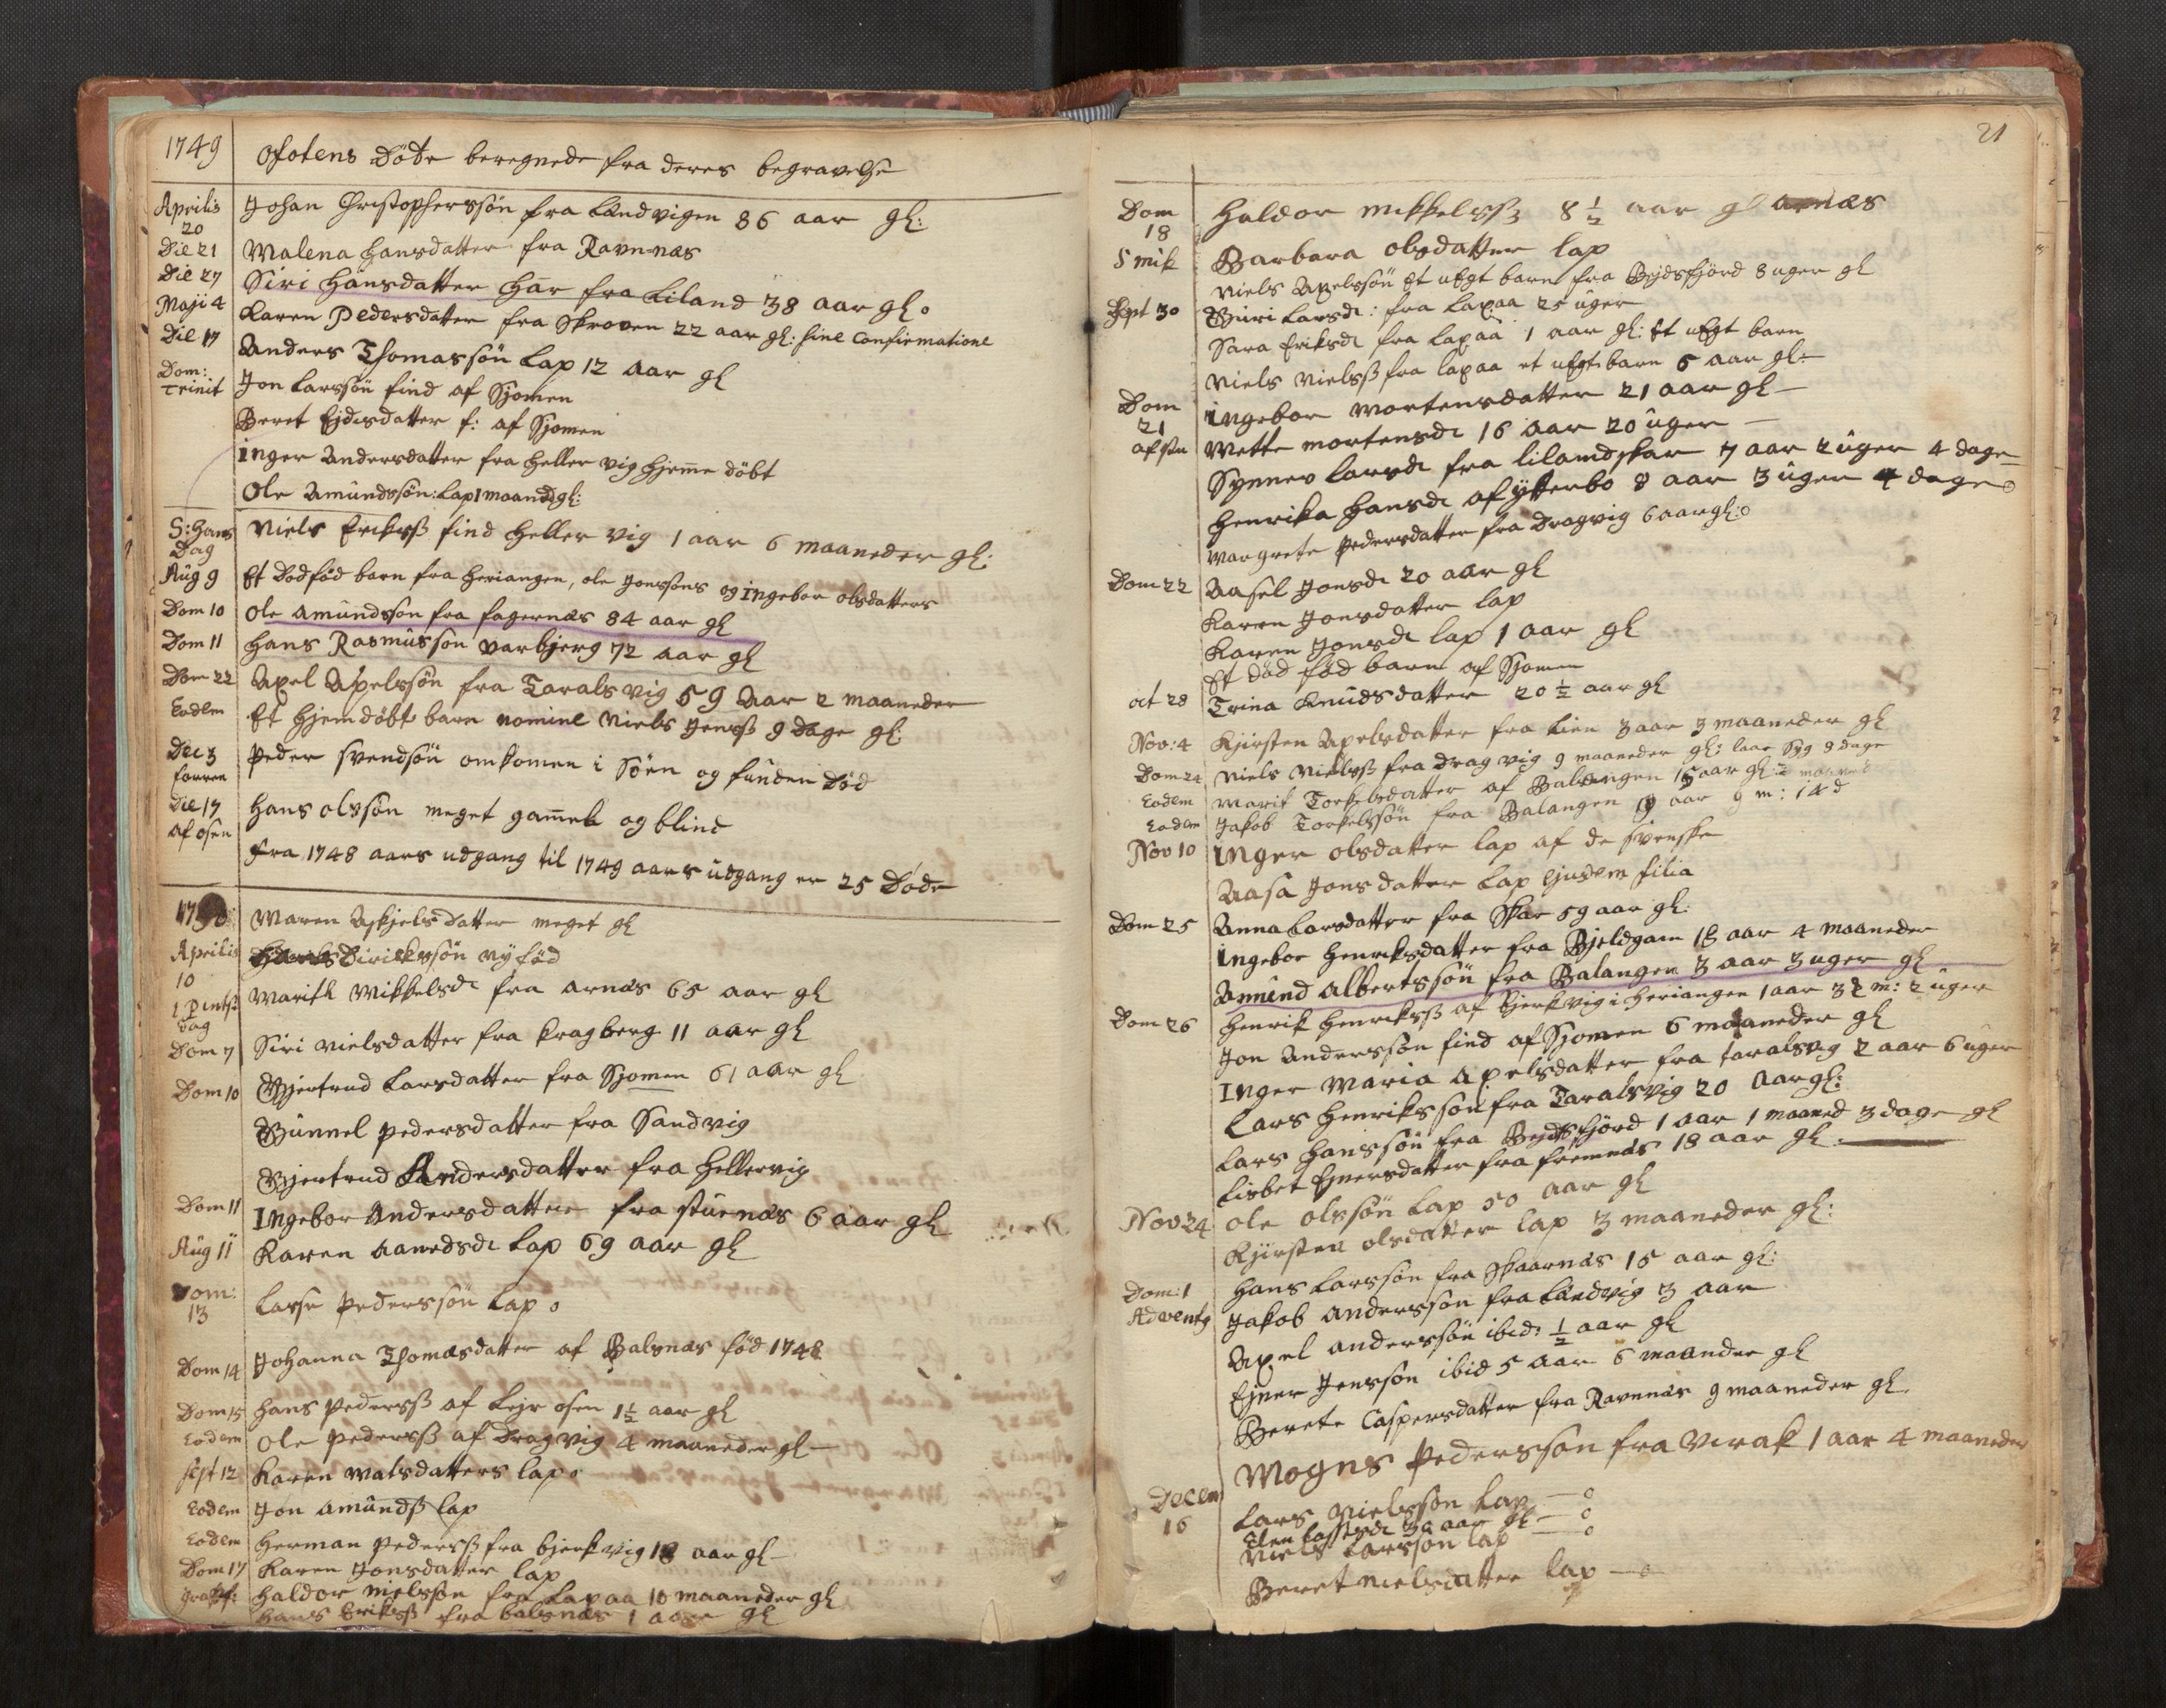 1749 Ofotens Döde beregnede fra deres begravelse
Aprilis 20 Johan Christophersön fra Landvigen 86 aar gl:
Die 21 Malena Hansdatter fra Ravnnæs
Die 27 Siri Hansdatter Hær fra Liland 38 aar gl.
Maji 4 Karen Pedersdatter fra Skroven 22 aar gl: sine Confirmatione
Die 17 Anders Thomassön Lap 12 aar gl
Dom: Trinit Jon Larssön find af Sjomen
Beret Ejdisdatter f: af Sjomen
Inger Andersdatter fra Hellervig hjemme döbt
Ole Amundssön: Lap 1 maaned gl:
S: Hans Dag Niels Erikss find Hellervig 1 aar 6 maaneder gl:
Aug 9 Et dodföd barn fra Heriangen, ole Jonssöns og Ingebor olsdatters
Dom 10 Ole Amundsson fra fagernæs 84 aar gl
Dom 11 Hans Rasmusson Varbjerg 72 aar gl
Dom 22 Axel Axelssön fra Taralsvig 59 aar 2 maaneder
Eodem Et hjemdöbt barn nomine Niels Jenss 9 dage gl:
Dec 3 forren Peder Svendsön omkomen i Söen og funden Död
Die 17 af osen Hans olssön meget gammel og blind
Fra 1748 aars udgang til 1749 aars udgang er 25 Döde
1750: Maren Askjelsdatter meget gl
Aprilis 10 Dirikssön nyföd
1 Pintse dag Marith Mikkelsd: fra Arnæs 65 aar gl
Dom 7 Siri Nielsdatter fra Kragberg 11 aar gl
Dom 10 Gjertrud Larsdatter fra Sjomen 61 aar gl
Gunnel Pedersdatter fra Sandvig
Gjertrud Andersdatter fra Hellervig
Dom 11 Ingebor Andersdatter fra Stuenæs 6 aar gl
Aug 11 Karen Aanedsd: Lap 69 aar gl
Dom: 13 Lasse Pederssön Lap
Dom 14 Johanna Thomasdatter af Balsnæs föd 1748
Dom 15 Hans Pederss af Lejr osen 1½ aar gl
Eodem Ole Pederss af Dragvig 4 maaneder gl
Sept 12 Karen Matsdatters lap
Eodem Jon Amundss lap
Eodem Herman Pederss fra bjerkvig aar gl
Dom 17 Karen Jonsdatter lap
Haldor Nielssön fra Lapaa 10 maaneder gl
Hans Erikss fra balsnæs 1 aar gl
21
Dom 18 Haldor Mikkelss 8½ aar gl Arnæs
S Mik Barbara olsdatter lap
Niels Axelssön Et uEgt barn fra Bejdsfjord 8 uger gl
Sept 30 Guri Larsd: fra Lapaa 25 uger
Sara Eriksd: fra Lapaa 1 aar gl: Et uEgt barn
Niels Nielss fra lapaa et uEgt barn 6 aar gl
Dom 21 Ingebor Mortensdatter 21 aar gl
Mette Mortensd: 16 aar 20 uger
Synnev Larsd: fra Lilandskar 7 aar 2 uger 4 dage
Henrika Hansd: af ytterbo 8 aar 3 uger 4 dage
Margrete Pedersdatter fra Dragvig 6 aar gl:
Dom 22 Aasel Jonsd: 20 aar gl
Karen Jonsdatter lap
Karen Jonsd: lap 1 aar gl
Et död föd barn af Sjomen
oct 28 Trina Knudsdatter 20½ aar gl
Nov: 4 Kjirsten Axelsdatter fra Lien 3 aar 3 maaneder gl
Dom 24 Niels Nielss fra Dragvig 9 maaneder gl: laae Syg 9 dage
Eodem Marit Torkelsdatter af Balangen 15 aar gl: 2 maaned
Eodem Jakob Torkelssön fra Balangen 9 aar 9 m: 14 d
Nov 10 Inger olsdatter lap af de Svenske
Aasa Jonsdatter Lap ejusdem filia
Dom 25 Anna Larsdatter fra Skar 59 aar gl:
Ingebor Henriksdatter fra Bjeldgam 15 aar 4 maaneder
Amund Albertssön fra Balangen 3 aar 3 uger gl
Dom 26 Henrik Henrikss af Bjerkvig i Heriangen 1 aar 3 m: 2 uger
Jon Anderssön find af Sjomen 6 maaneder gl
Inger Maria Axelsdatter fra Taralsvig 2 aar 6 uger
Lars Henrikssön fra Taralsvig 20 Aar gl:
Lars Hanssön fra Bejdsfjörd 1 aar 1 maaned 3 dage gl
Lisbet Ejnersdatter fra fremnæs 18 aar gl:
Nov 24 Ole olssön Lap 50 aar gl
Kjirsten olsdatter lap 3 maaneder gl:
Dom: 1 Adventg Hans Larssön fra Skaarnæs 15 aar gl:
Jakob Anderssön fra Landvig 3 aar
Axel Anderssön ibid: ½ aar gl
Ejner Jenssön ibid 5 aar 6 maander gl
Berete Caspersdatter fra Ravnnæs 9 maaneder gl.
Mogns Pederssön fra Virak 1 aar 4 maaneder
Decem 16 Lars Nielssön Lap
Elen Lassesd: 30 aar gl
Niels Larssön lap
Beret Nielsdatter lap